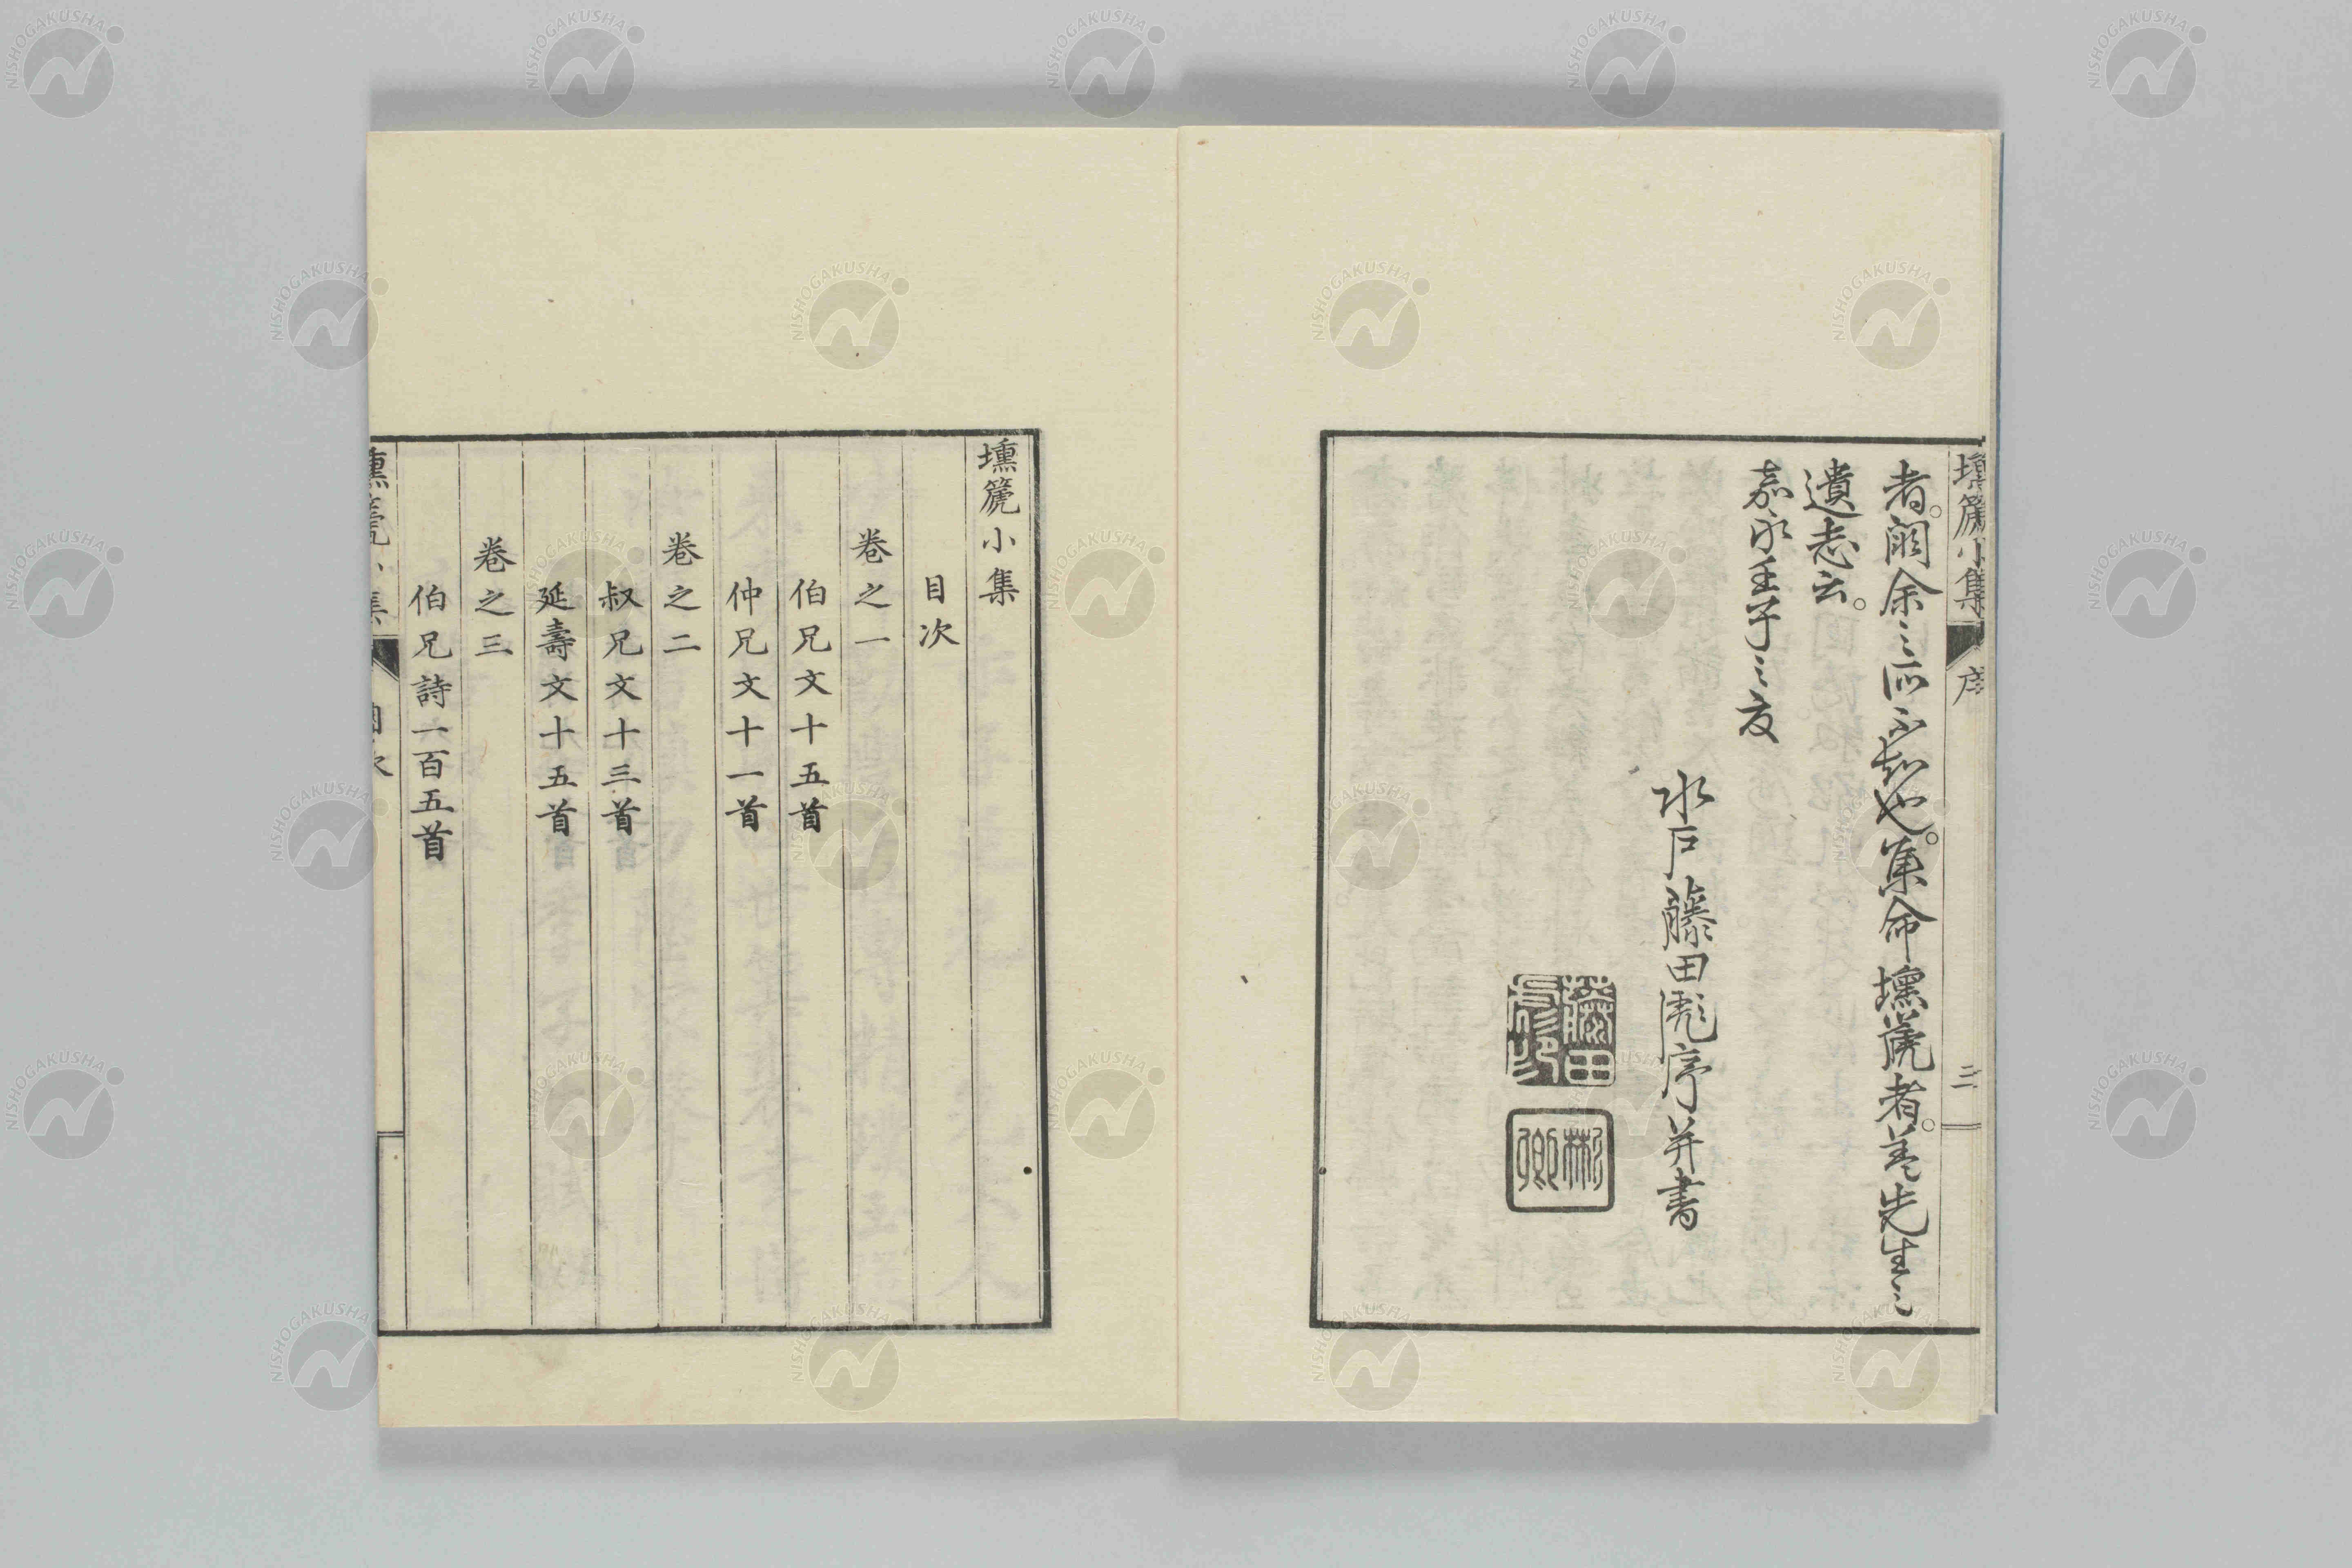 壎篪小集 序 三
者。闕余之所不知也。集命壎篪者。蓋先生之
遺志云。
嘉永壬子之夏
水戶藤田彪序并書
藤田彪印
彬卿
壎篪小集
目次
卷之一
伯兄文十五首
仲兄文十一首
卷之二
叔兄文十三首
延壽文十五首
卷之三
伯兄詩一百五首
壎篪小集 目次
NISHOGAKUSHA